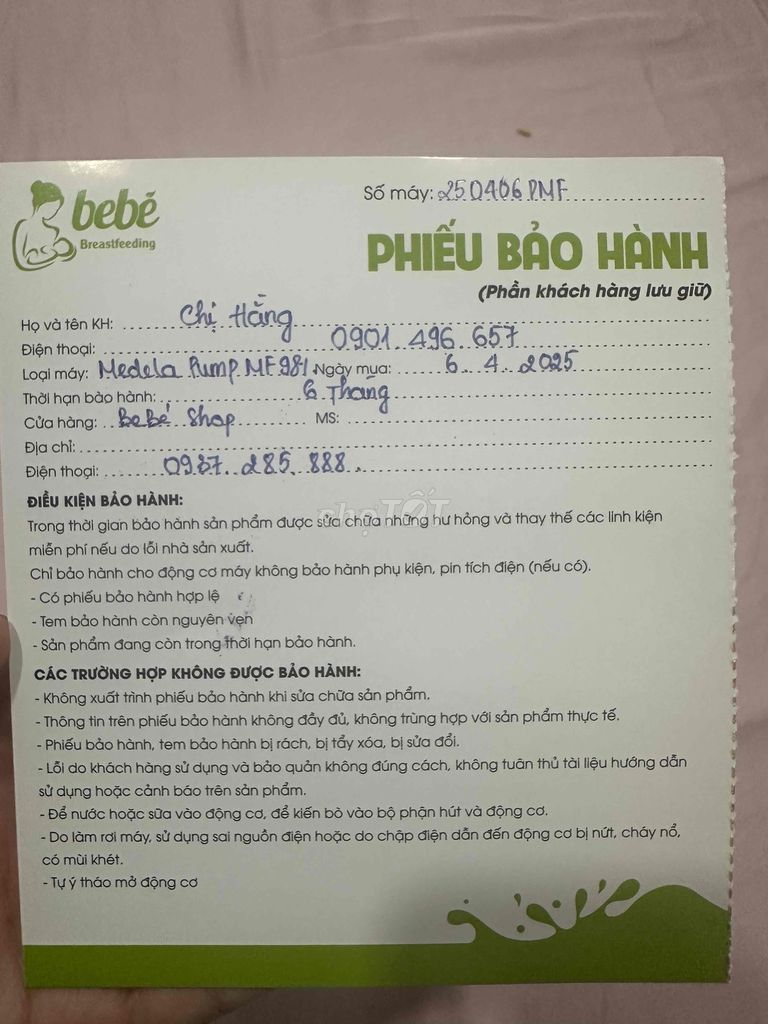 bebé
Breastfeeding
Số máy: 250406 PMF
PHIẾU BẢO HÀNH
(Phần khách hàng lưu giữ)
Họ và tên KH: Chị Hằng
Điện thoại: 0901.496.657
Loại máy: Medela Pump MF 981. Ngày mua: 6.4.2025
Thời hạn bảo hành: 6 Tháng
Cửa hàng: BeBé Shop MS:
Địa chỉ:
Điện thoại: 0937.285.888.
ĐIỀU KIỆN BẢO HÀNH:
Trong thời gian bảo hành sản phẩm được sửa chữa những hư hỏng và thay thế các linh kiện
miễn phí nếu do lỗi nhà sản xuất.
Chỉ bảo hành cho động cơ máy không bảo hành phụ kiện, pin tích điện (nếu có).
- Có phiếu bảo hành hợp lệ
- Tem bảo hành còn nguyên vẹn
- Sản phẩm đang còn trong thời hạn bảo hành.
CÁC TRƯỜNG HỢP KHÔNG ĐƯỢC BẢO HÀNH:
- Không xuất trình phiếu bảo hành khi sửa chữa sản phẩm.
- Thông tin trên phiếu bảo hành không đầy đủ, không trùng hợp với sản phẩm thực tế.
- Phiếu bảo hành, tem bảo hành bị rách, bị tẩy xóa, bị sửa đổi.
- Lỗi do khách hàng sử dụng và bảo quản không đúng cách, không tuân thủ tài liệu hướng dẫn
sử dụng hoặc cảnh báo trên sản phẩm.
- Để nước hoặc sữa vào động cơ, để kiến bò vào bộ phận hút và động cơ.
- Do làm rơi máy, sử dụng sai nguồn điện hoặc do chập điện dẫn đến động cơ bị nứt, cháy nổ,
có mùi khét.
- Tự ý tháo mở động cơ
chợTỐT